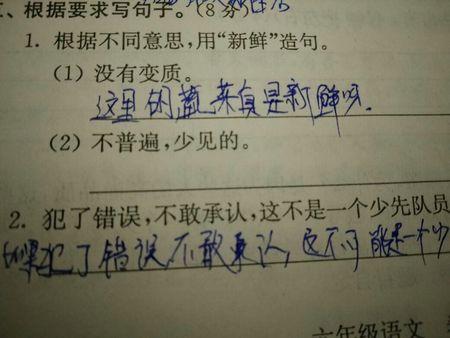 、根据要求写句子。(8分)
1. 根据不同意思,用“新鲜”造句。
(1) 没有变质。
这里的蔬菜真是新鲜呀。
(2) 不普遍,少见的。
2. 犯了错误,不敢承认,这不是一个少先队员
如果犯了错误不敢承认,这不可能是一个少
六年级语文